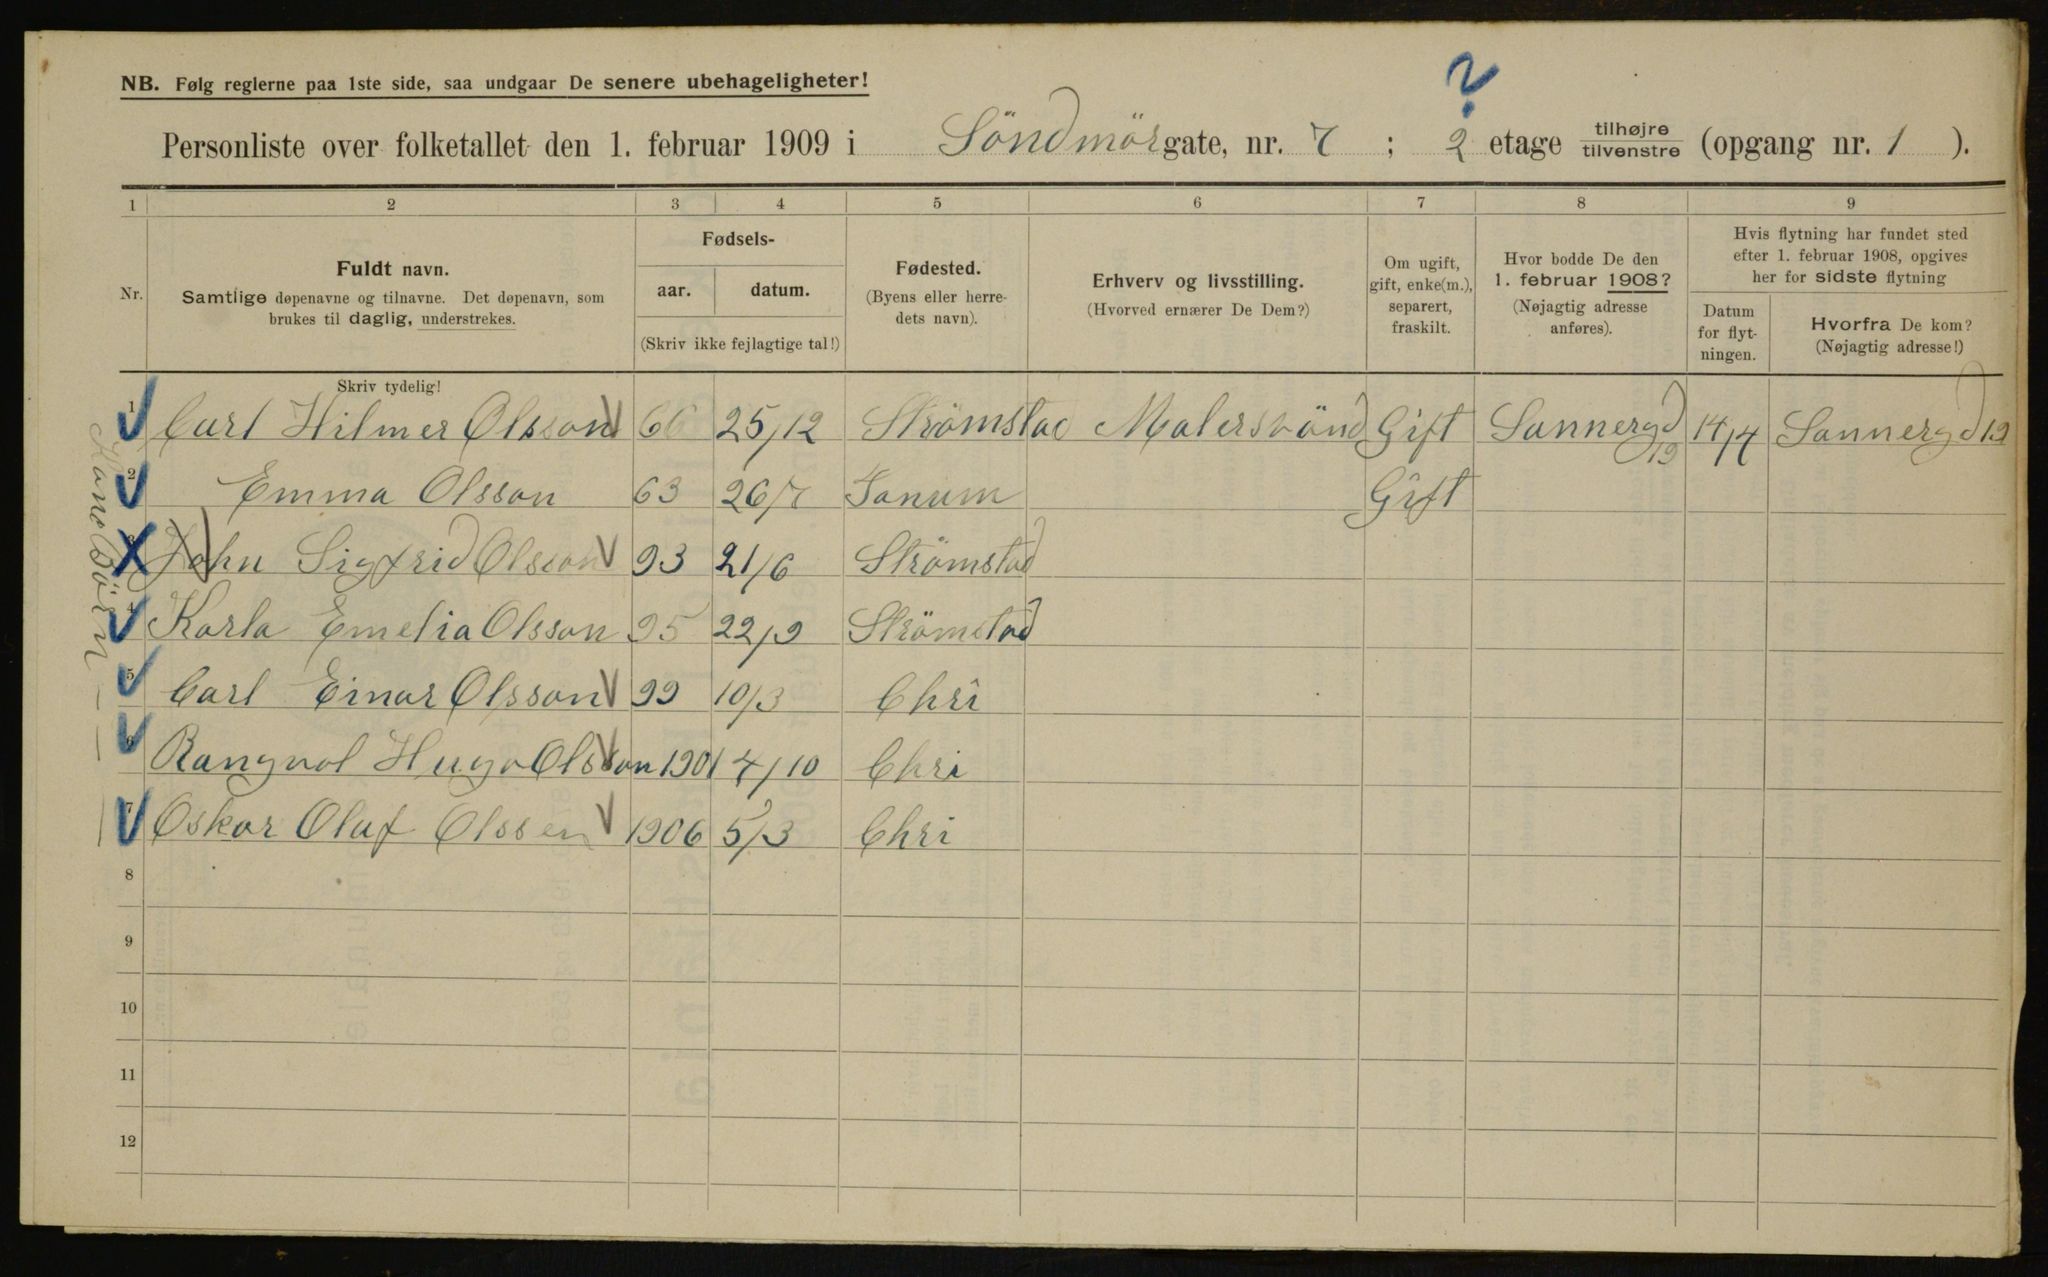 NB. Følg reglerne paa 1ste side, saa undgaar De senere ubehageligheter!
?
Personliste over folketallet den 1. februar 1909 i Söndmörgate, nr. 7 ; 2 etage tilhøjre tilvenstre (opgang nr. 1 ).
1 2 3 4 5 6 7 8 9
Nr.
Fuldt navn.
Samtlige døpenavne og tilnavne. Det døpenavn, som
brukes til daglig, understrekes.
Fødsels-
aar. datum.
(Skriv ikke fejlagtige tal!)
Fødested.
(Byens eller herre-
dets navn).
Erhverv og livsstilling.
(Hvorved ernærer De Dem?)
Om ugift,
gift, enke(m.),
separert,
fraskilt.
Hvor bodde De den
1. februar 1908?
(Nøjagtig adresse
anføres).
Hvis flytning har fundet sted
efter 1. februar 1908, opgives
her for sidste flytning
Datum
for flyt-
ningen.
Hvorfra De kom?
(Nøjagtig adresse!)
Skriv tydelig!
1 Carl Hilmer Olsson 66 25/12 Strömstad Malersvönd Gift Sannergd 19 14/4 Sannergd 19
2 Emma Olsson 63 26/7 Tanum Gift
3 John Sigfrid Olsson 93 21/6 Strömstad
4 Karla Emelia Olsson 95 22/9 Strömstad
5 Carl Einar Olsson 99 10/3 Chri
6 Rangval Hugo Olsson 1901 4/10 Chri
7 Oskar Olaf Olssen 1906 5/3 Chri
8
9
10
11
12
Kone Börn